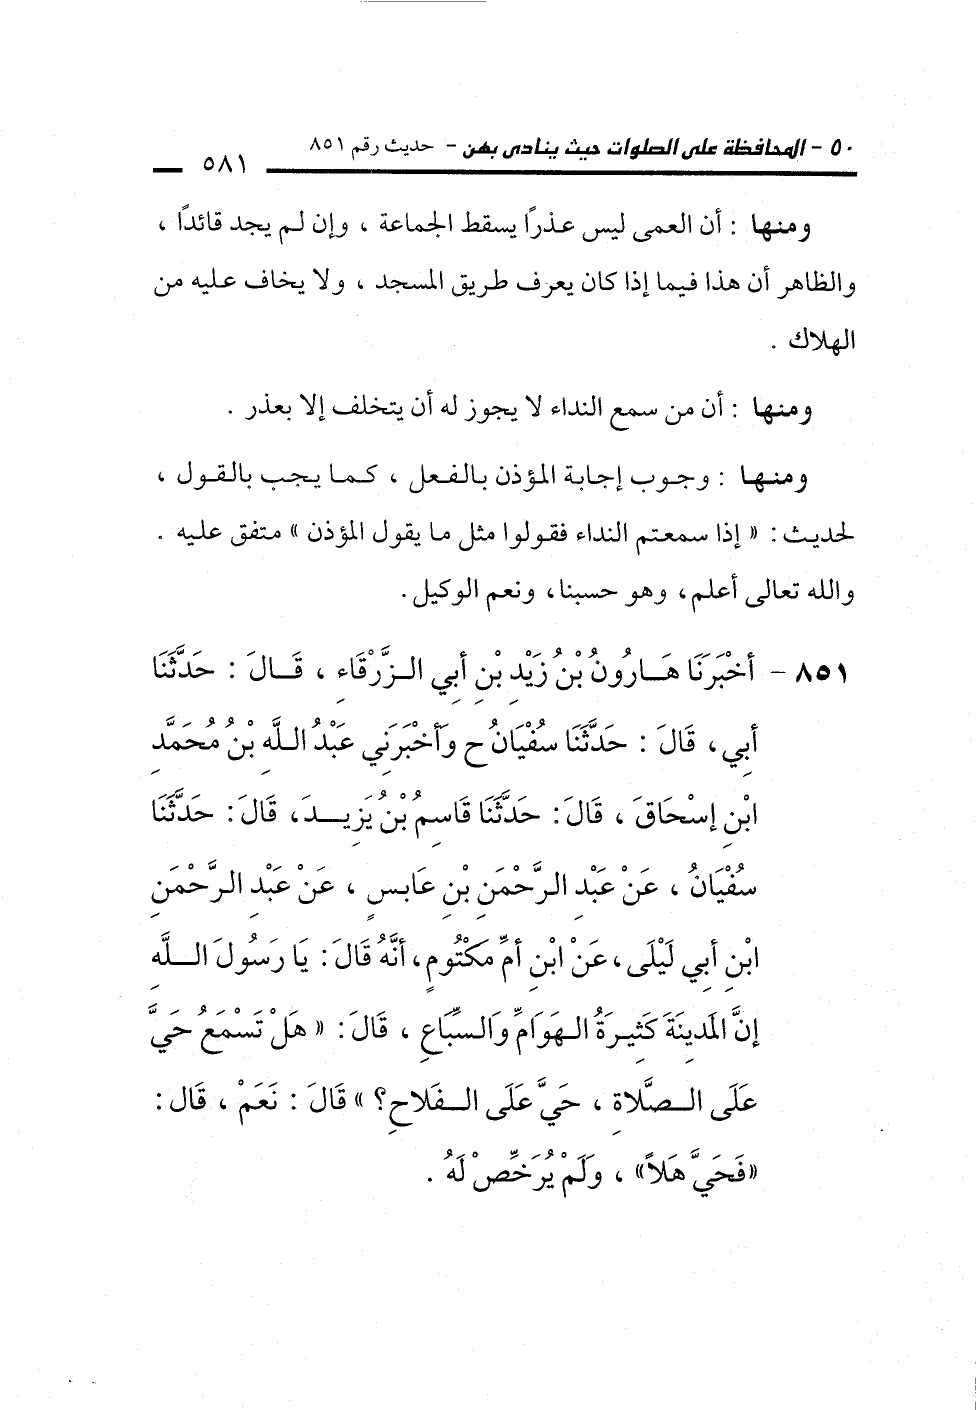 ٥٠ - المحافظة على الصلوات حيث ينادى بهن - حديث رقم ٨٥١
٥٨١
ومنها : أن العمى ليس عذرًا يسقط الجماعة ، وإن لم يجد قائدًا ،
والظاهر أن هذا فيما إذا كان يعرف طريق المسجد ، ولا يخاف عليه من
الهلاك .
ومنها : أن من سمع النداء لا يجوز له أن يتخلف إلا بعذر .
ومنها : وجوب إجابة المؤذن بالفعل ، كما يجب بالقول ،
لحديث : « إذا سمعتم النداء فقولوا مثل ما يقول المؤذن » متفق عليه .
والله تعالى أعلم، وهو حسبنا، ونعم الوكيل.
٨٥١ - أَخْبَرَنَا هَارُونُ بْنُ زَيْدِ بْنِ أَبِي الزَّرْقَاءِ ، قَالَ : حَدَّثَنَا
أَبِي، قَالَ : حَدَّثَنَا سُفْيَانُ ح وَأَخْبَرَنِي عَبْدُ اللَّهِ بْنُ مُحَمَّدِ
ابْنِ إِسْحَاقَ ، قَالَ : حَدَّثَنَا قَاسِمُ بْنُ يَزِيدَ، قَالَ : حَدَّثَنَا
سُفْيَانُ ، عَنْ عَبْدِ الرَّحْمَنِ بْنِ عَابِسٍ ، عَنْ عَبْدِ الرَّحْمَنِ
ابْنِ أَبِي لَيْلَى، عَنْ ابْنِ أُمِّ مَكْتُومٍ، أَنَّهُ قَالَ : يَا رَسُولَ اللَّهِ
إِنَّ المَدِينَةَ كَثِيرَةُ الهَوَامِّ وَالسِّبَاعِ ، قَالَ : « هَلْ تَسْمَعُ حَيَّ
عَلَى الصَّلَاةِ ، حَيَّ عَلَى الفَلَاحِ؟ » قَالَ : نَعَمْ ، قَالَ :
«فَحَيَّ هَلاً» ، وَلَمْ يُرَخِّصْ لَهُ .